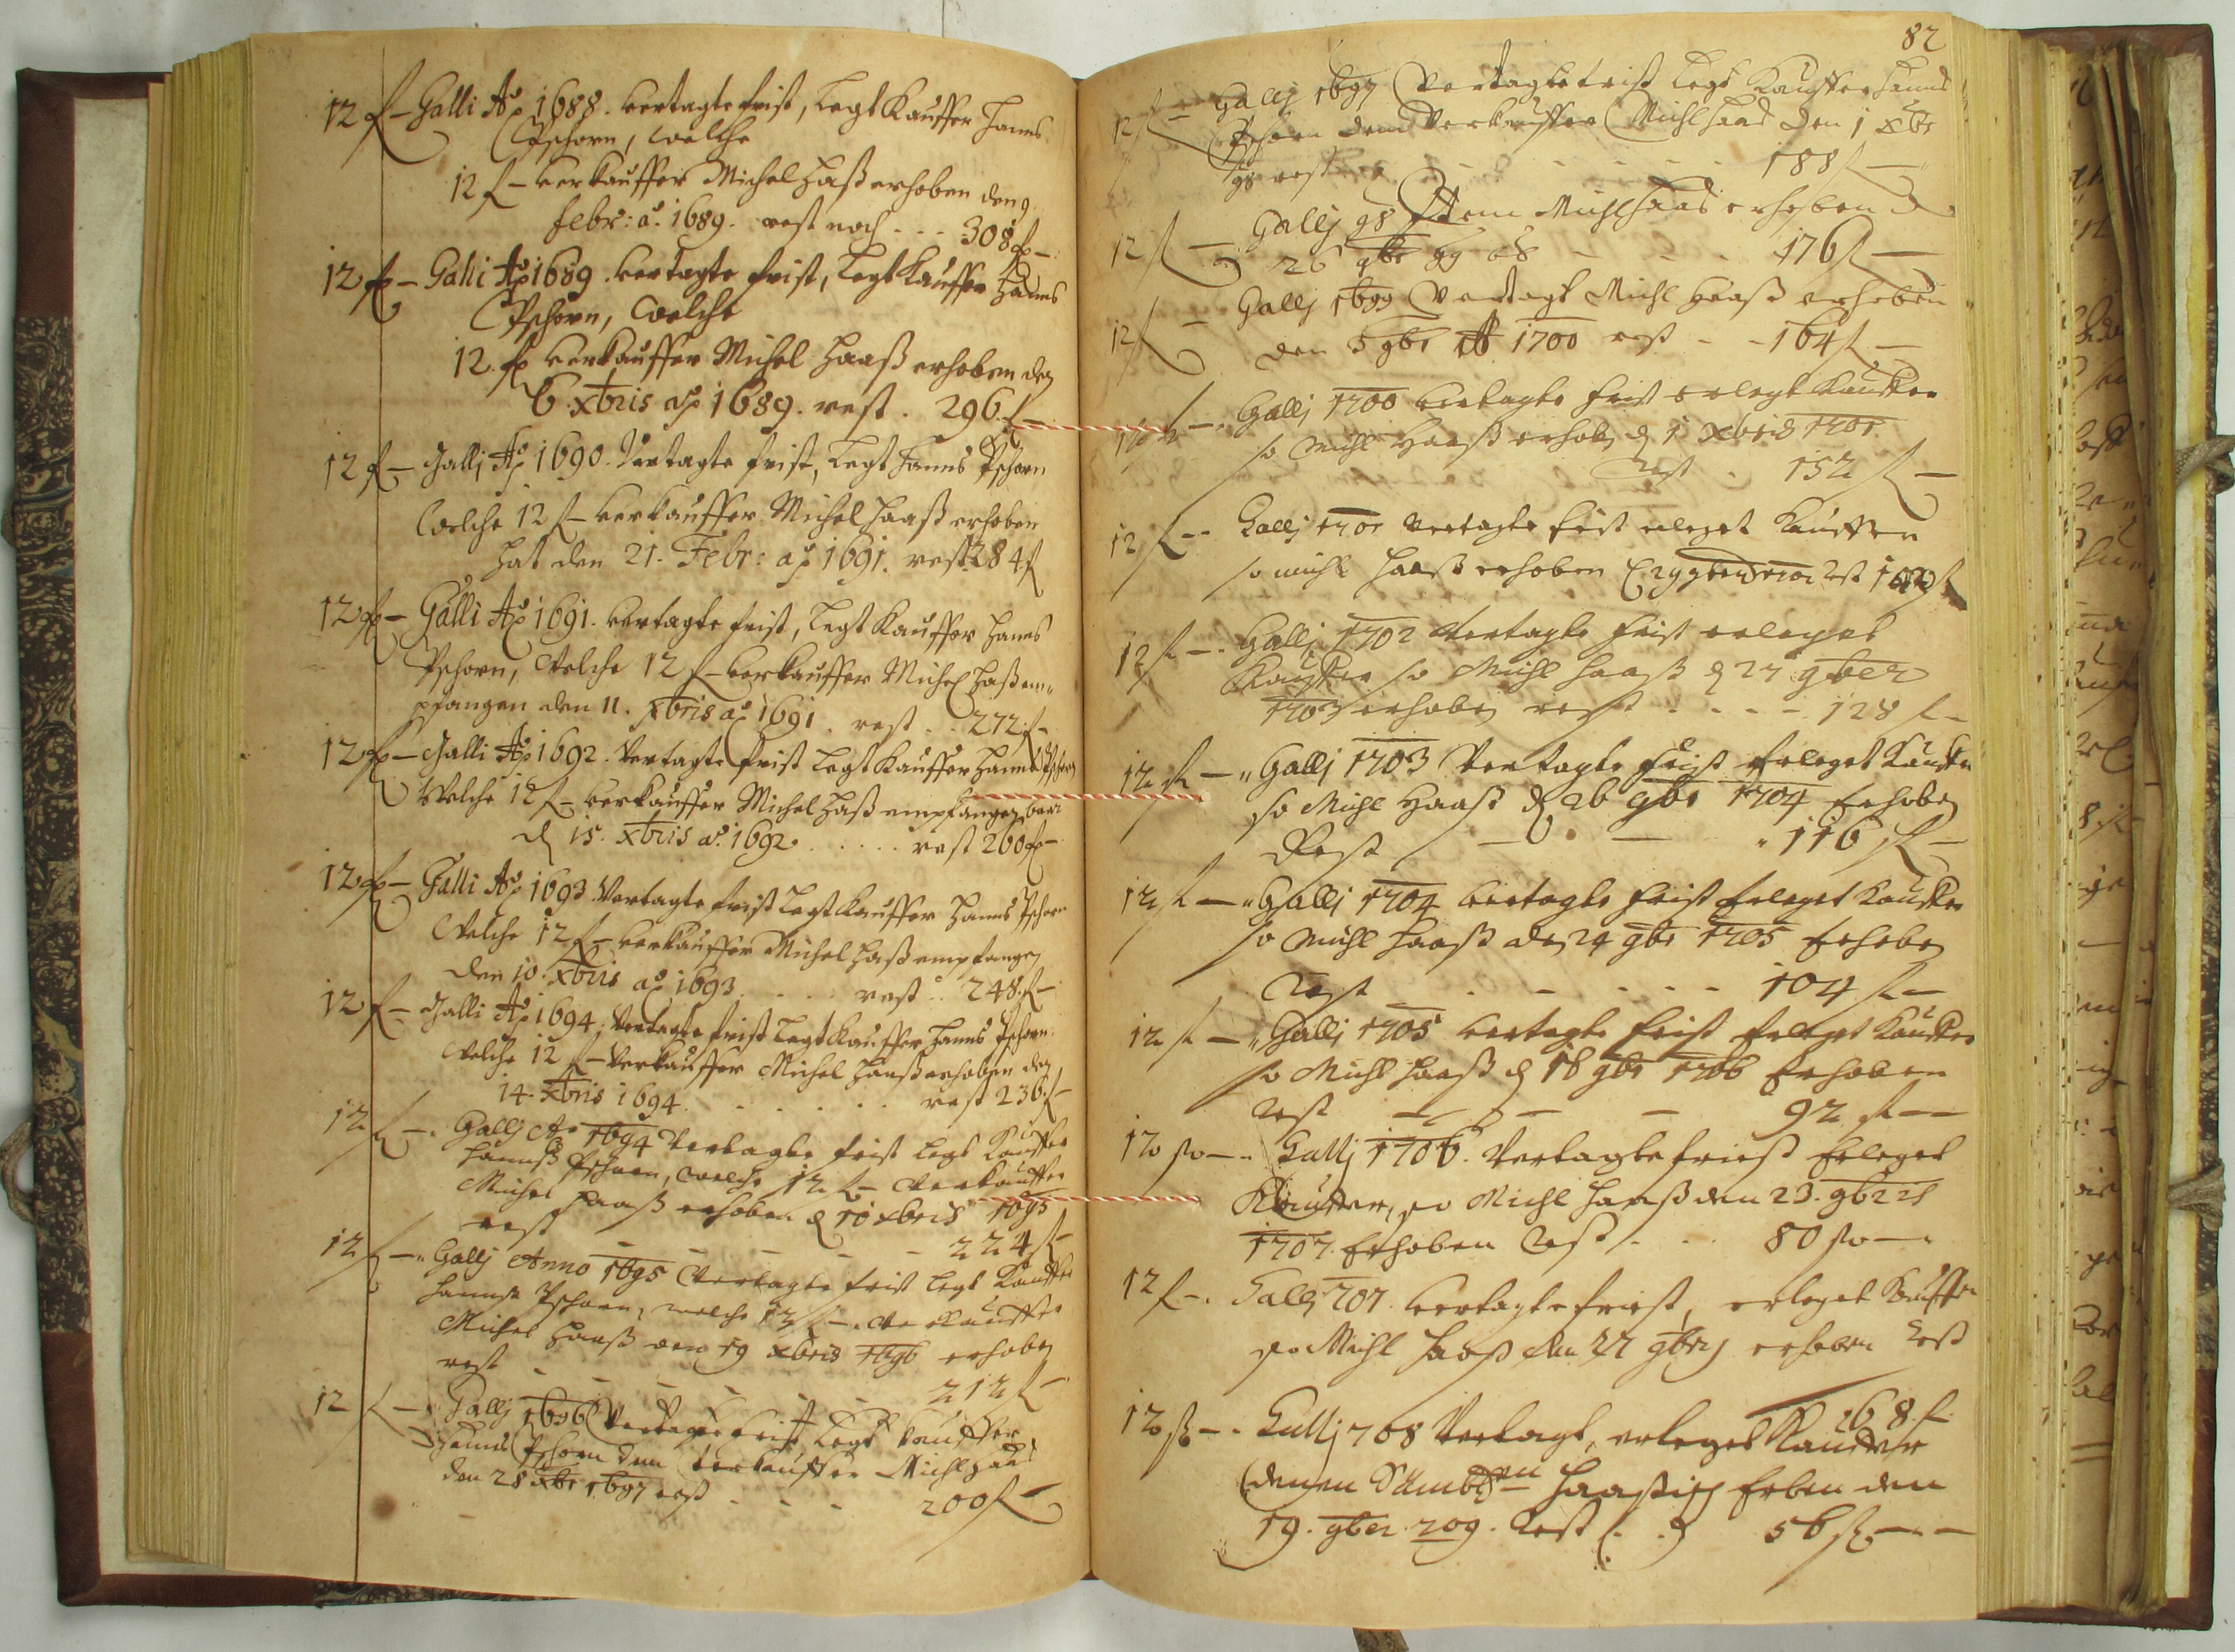 12 f – Galli Aō 1688. vertagte frist, Legt Kauffer Hanns
Pschorn, welche
12 f – verkauffer Michel Haaß erhoben den 9
febr: aō. 1689. rest noch - - - 308 f –
12 f – Galli Aō 1689. vertagte frist, Legt Kauffer Hanns
Pschorn, welche
12 f verkauffer Michel Haaß erhoben den
6. xbris aō 1689. rest. 296 f –
12 f – Galli Aō 1690. Vertagte frist, Legt Hanns Pschorn
welche 12 f – verkauffer Michel Haaß erhoben
hat den 21. Febr: aō 1691. rest. 284 f
12 f – Galli Aō 1691. vertagte frist, Legt Kauffer Hanns
Pschorn, welche 12 f – verkauffer Michel Haß em„
pfangen den 11. xbris aō 1691. rest . . 272 f –
12 f – Galli Aō 1692. Vertagte frist Legt Kauffer Hanns Pschorn
Welche 12 f – verkauffer Michel Haß empfangen
d 15. xbris aō. 1692. . . . . rest 260 f –
12 f – Galli Aō 1693. Vertagte frist Legt Kauffer Hanns Pschorn
Welche 12 f – verkauffer Michel Haß empfangen
den 10. xbris aō 1693. . . . rest . . 248 f –
12 f – Galli Aō 1694. Vertagte frist Legt Kauffer Hanns Pschorn
welche 12 f – Verkauffer Michel Haaß erhoben den
14. xbris 1694. . . . . . rest 236 f –
12 f –. Gallj Ao 1694 Vertagte frist legt Kauffer
Hannß Pschorn, welche 12 f – Verkauffer
Michel Haaß erhoben d 10 xbris 1695
rest - - - - - 224 f –
12 f –„ Gallj Anno 1695 Vertagte frist legt Kauffer
Hannß Pschorn, welche 12 f –. Verkauffer
Michel Haaß den 19 xbris 1696 erhoben
rest - - - - - 212 f –
12 f –„ Gallj 1696 Vertagte frist Legt Kauffer
Hanns Pschorn dem Verkauffer Michl Haas
den 28 xbr 1697 rest - - - 200 f –
82
12 f – Gallj 1697 Vertagte frist legt Kauffer Hanns
Pschorn dem Verkauffer Michl Haas den 1 xbr
98 rest - - - - - 188 f –
12 f – Gallj 98 Item Michl Haas erhoben
26 9br 99 - - - 176 f –
12 f – Gallj 1699 Vertagt Michl Haaß erhoben
den 5 9br Ao 1700 rest - - 164 f –
12 f –. Gallj 1700 vertagte frist erlegt Kauffer
so Michl Haaß erhob d 1 xbris 1701.
Rest . 152 f –
12 f –. Gallj 1701 vertagte frist erleget Kauffer
so michl Haaß erhoben Rest
12 f –. Gallj 1702 vertagte frist erleget
Kauffer so Michl Haaß d 27 9ber
1703 erhoben rest . . . - - 128 f –
12 f –„ Gallj 1703 Vertagte frist Erleget Kauffer
so Michl Haaß d 26 9br 1704 Erhoben
Rest – – „ 116 f –
12 f –„ Gallj 1704 vertagte frist Erleget Kauffer
so Michl Haaß den 24 9br 1705 Erhoben
Rest . - . . - - 104 f –
12 f –„ Gallj 1705 vertagte frist Erleget Kauffer
so Michl Haaß d 18 9br 1706 Erhoben
Rest – – – 92 f –
12 f –„ Gallj 1706. Vertagte friest Erleget
Kauffer, so Michl Haaß den 23. 9bris
1707. Erhoben Rest . . . 80 f –.
12 f –. Gallj 707. vertagte friest, erleget Kauffer
so Michl Haaß den 27 9bris erhoben Rest
68 f.
12 f –. Gallj 708 Vertagt, erleget Kauffer
denen Haaßisch Erben den
19. 9ber 709. Rest . . 56 f –